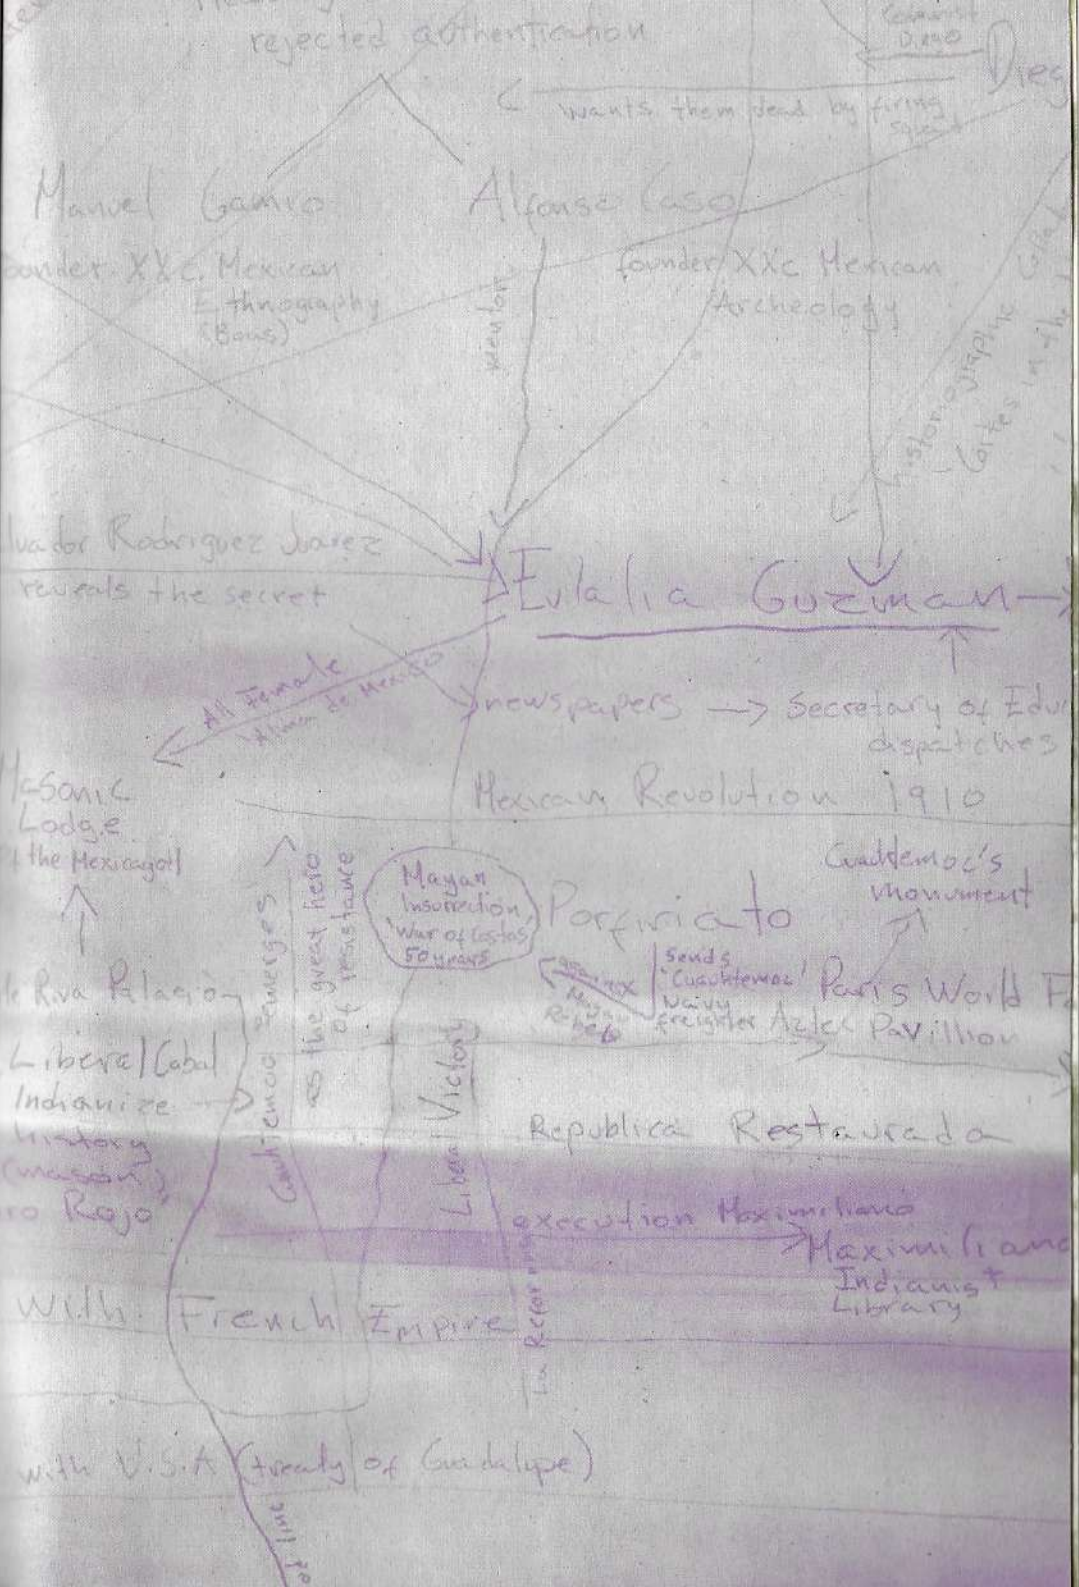 rejected authentication
Diego
Dieg
wants them dead by firing
squad
Manuel Gamio
Alfonso Caso
ounder XXc. Mexican
Ethnography
(Boas)
founder XXc Mexican
Archeology
mentor
Cortes in the
lvador Rodriguez Juarez
reveals the secret
Eulalia Guzman
All Female
newspapers → Secretary of Edu
dispatches
Mexican Revolution 1910
Masonic
Lodge
the Mexicayotl
Cuauhtemoc emerges
as the great hero
of resistance
Mayan
Insurrection
"War of Castas"
50 years
Porfiriato
Cuauhtemoc's
monument
Sends
'Cuauhtemoc'
Navy
freighter
against
Mayan
Rebels
Paris World Fa
Aztec Pavillion
de Riva Palacio
Liberal Cabal
Indianize
history
(mason)
ro Rojo
Liberal Victory
Republica Restaurada
execution Maximiliano
Maximiliano
Indianist
Library
La Reforma
with French Empire
with U.S.A (treaty of Guadalupe)
of line